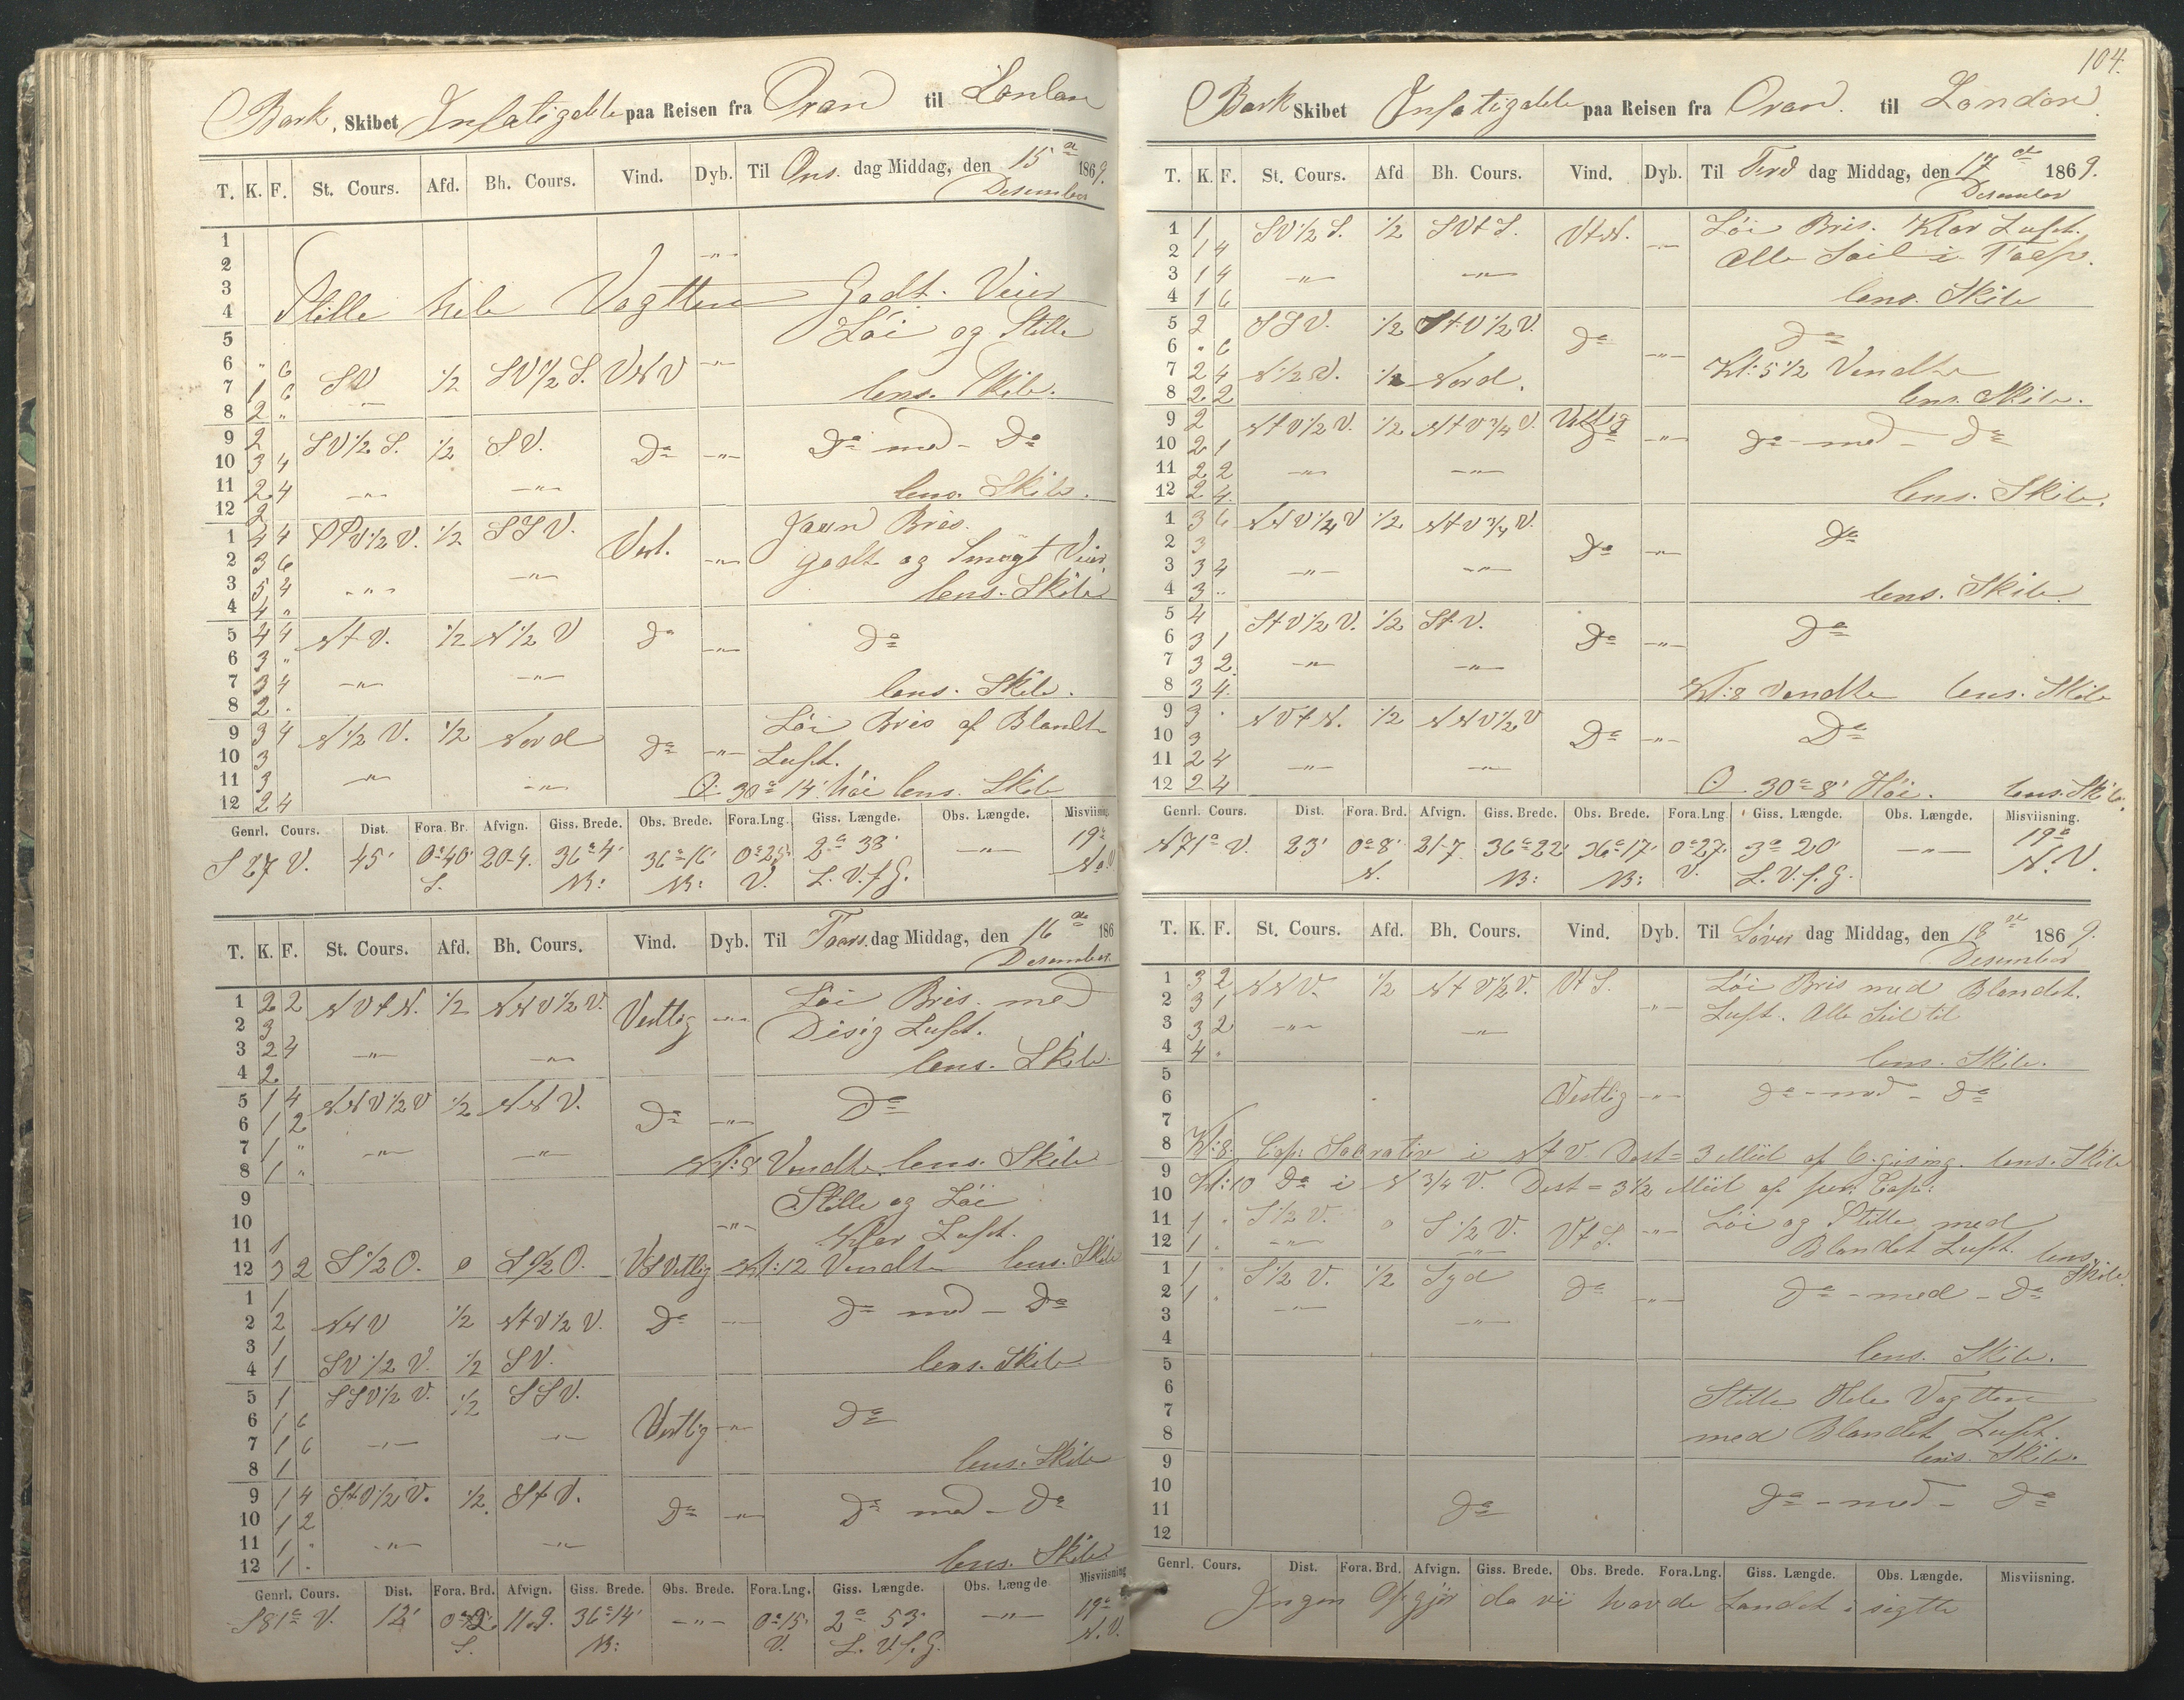 Bark Skibet Infatigable paa Reisen fra Oran til London
T. K. F. St. Cours. Afd. Bh. Cours. Vind. Dyb. Til Ons dag Middag, den 15de Desember 1869.
1
2 -"-
3 Stille hele Vagtten Godt Veier
4
5 Löi og Stille
6 " 6 SV 1/2 SV 1/2 S. VNV -"-
7 1 6 -"- lens. Skib.
8 2 "
9 2 SV 1/2 S. 1/2 SV. Do -"- Do med Do
10 3 4
11 2 4 -"- -"- lens. Skib.
12 2
1 4 4 SSV 1/2 V. 1/2 SSV. Vest. -"- Jævn Bris.
2 3 6 godt og Smugt Veier
3 5 4 -"- -"- lens. Skib
4 4 "
5 4 4 NtV. 1/2 N 1/2 V Do -"- Do
6 3 "
7 3 4 -"- -"- lens. Skib.
8 2 .
9 3 4 N 1/2 V. 1/2 Nord Do -"- Löi Bris af Blandt
10 3 Luft.
11 3 -"- -"-
12 2 4 30° 14' höi lens. Skib
Genrl. Cours. Dist. Fora. Br. Afvign. Giss. Brede. Obs. Brede. Fora. Lng. Giss. Længde. Obs. Længde. Misviisning.
S 27 V. 45' 0°40' S. 20-4. 36°4' N: 36°16' N: 0°25' V. 2° 38' L. V. f. G. -"- 19° N.V
T. K. F. St. Cours. Afd. Bh. Cours. Vind. Dyb. Til Toers dag Middag, den 16de Desember 186
1 2 2 NVtN. 1/2 NNV 1/2 V. Vestlig -"- Löi Bris. med
2 3 Disig Luft.
3 2 4 -"- -"- lens. Skib.
4 2
5 1 4 NNV 1/2 V 1/2 NNV. Do -"- Do
6 1 2
7 1 " -"- -"-
8 1 " Kl: 8 Vendte lens. Skib
9 Stille og Löi
10 -"- Klar Luft.
11 1
12 3 2 S 1/2 O. o S 1/2 O. Kl: 12 Vendte lens. Skib
1 1
2 2 NNV 1/2 NtV 1/2 V. Do -"- Do med - Do
3 1
4 1 SV 1/2 V. 1/2 SV. lens. Skib
5 1 SSV 1/2 V. 1/2 SSV.
6 1 6 Vestlig -"- Do
7 1 6 -"- -"- lens. Skib
8 1
9 1 4 StV 1/2 V. 1/2 StV. Do -"- Do med - Do
10 1 2
11 1 " -"- -"-
12 1 . lens. Skib
Genrl. Cours. Dist. Fora. Brd. Afvign. Giss. Brede. Obs. Brede. Fora. Lng. Giss. Længde. Obs. Længde Misviisning
S 81° V. 12' 0°2' S. 11.9. 36°14' N: -"- 0°15' V. 2° 53' L. V. f. G. -"- 19° N.V.
104.
Bark Skibet Infatigable paa Reisen fra Oran. til London
T. K. F. St. Cours. Afd Bh. Cours. Vind. Dyb. Til Fred dag Middag, den 17de Desember 1869.
1 1 SV 1/2 S. 1/2 SVtS. VtN. -"- Löi Bris. Klar Luft.
2 1 4 Alle Seil i Top.
3 1 4 -"- -"-
4 1 6 lens. Skib
5 2 SSV. 1/2 StV 1/2 V. Do -"- Do
6 " 6
7 2 4 N 1/2 V. 1/2 Nord. Kl: 5 1/2 Vendte
8 2 2 lens. Skib.
9 2 NtV 1/2 V. 1/2 NtV 3/4 V. Vestlig -"- Do - med - Do
10 2 1
11 2 2 -"- -"-
12 2 4. lens. Skib.
1 3 6 NNV 1/4 V 1/2 NtV 3/4 V. Do -"- Do
2 3
3 3 4 -"- -"-
4 3 .. lens. Skib.
5 4 StV 1/2 V. 1/2 StV. Do -"- Do
6 3 1
7 3 2. -"- -"-
8 3 4. Kl: 8 Vendte lens. Skib
9 3 . NVtN. 1/2 NNV 1/2 V Do -"- Do
10 3
11 2 4 -"- -"-
12 2 4 30° 8' Höi. lens. Skib.
Genrl. Cours. Dist. Fora. Brd. Afvign. Giss. Brede. Obs. Brede. Fora. Lng Giss. Længde. Obs. Længde. Misviisning.
N 71° V. 23' 0°8' N. 21-7. 36°22' N: 36°17' N: 0°27' V. 3° 20' L. V. f. G. -"- 19° N.V.
T. K. F. St. Cours. Afd. Bh. Cours. Vind. Dyb. Til Löver dag Middag, den 18de Desember 1869.
1 3 2 NNV. 1/2 NtV 1/2 V. VtS. -"- Löi Bris med Blandet.
2 3 1 Luft. Alle Seil til
3 3 2 -"- -"-
4 4 . lens. Skib.
5
6 Vestlig -"- Do - med - Do
7
8 Kl: 8. Cap: i NtV. Dest = 3 Miil af lens. Skib
9 Kl: 10 Do i N 3/4 V. Dest = 3 1/2 Miil af Cap:
10
11 1 . S 1/2 V. o S 1/2 V. VtS. -"- Löi og Stille med
12 1 . -"- -"- Blandet Luft. lens.
1 1 . S 1/2 V. 1/2 Syd Do -"- Do - med - Do Skib.
2 1 .
3 -"- -"-
4 lens. Skib.
5
6 Stille Hele Vagtten
7 med Blandet Luft.
8 lens. Skib.
9
10 Do Do - med - Do
11
12
Genrl. Cours. Dist. Fora. Brd. Afvign. Giss. Brede. Obs. Brede. Fora. Lng. Giss. Længde. Obs. Længde. Misviisning.
Ingen Opgjör da vi havde Landet i sigtte